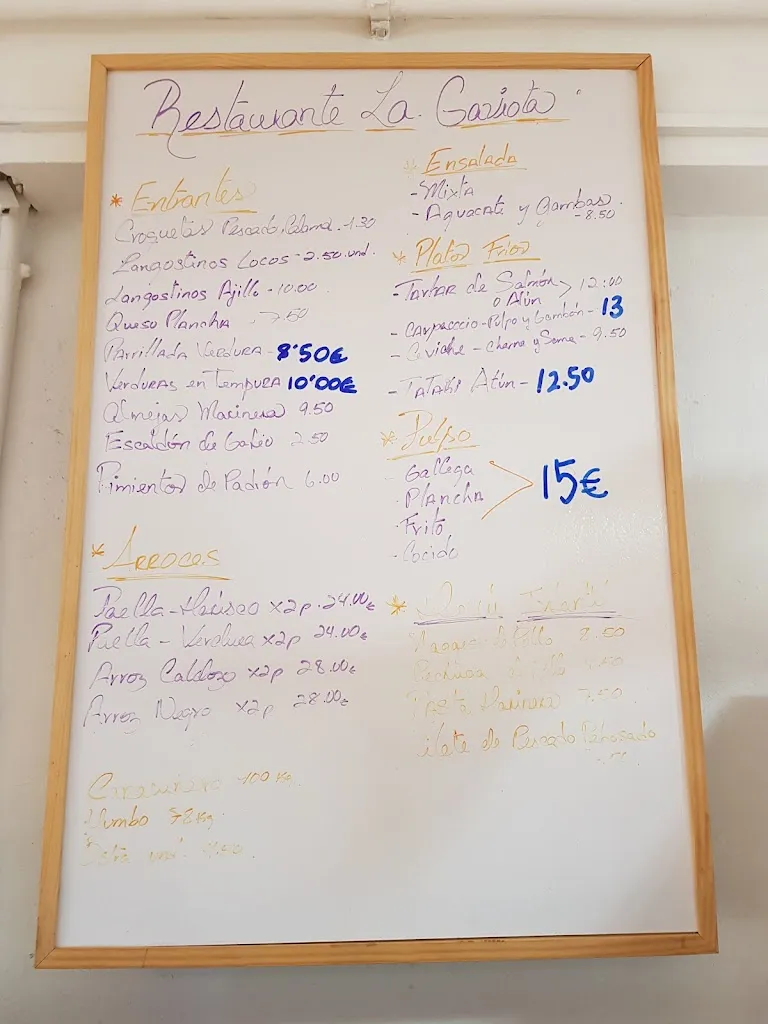 Restaurante La Gaviota
* Entrantes
Croquetas Pescado, -1.30
Langostinos Locos - 2.50 und.
Langostinos Ajillo - 10.00
Queso Plancha - 7.50
Parrillada Verdura - 8'50€
Verduras en Tempura 10'00€
Almejas Marinera 9.50
Escaldón de Gofio 2.50
Pimientos de Padrón 6.00
* Arroces
Paella - Marisco x2p. 24.00€
Paella - Verdura x2p 24.00€
Arroz Caldozo x2p 28.00€
Arroz Negro x2p 28.00€
Carabinero 100 Kg
78 Kg
und.
* Ensalada
- Mixta
- Aguacate y Gambas.
- 8.50
* Platos Frios
- Tartar de Salmón > 12:00
o Atún
- Carpaccio - Pulpo y Gambón - 13
- Ceviche - Cherne y Sama - 9.50
- Tataki Atún - 12.50
* Pulpo
- Gallega
- Plancha 15€
- Frito
- Cocido
* Menú Infantil
Pollo 8.50
Pasta Marinera 7.50
Filete de Pescado Rebosado